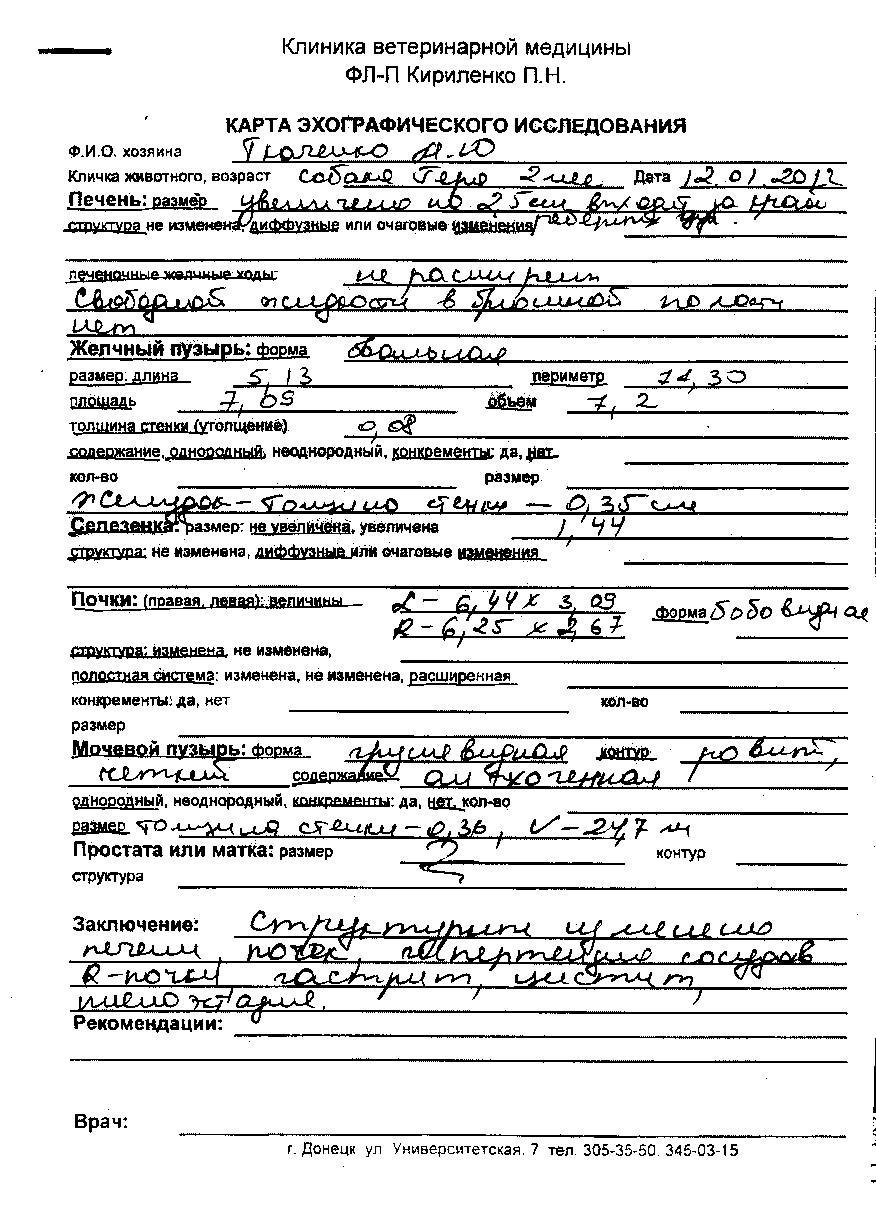 Клиника ветеринарной медицины
ФЛ-П Кириленко П.Н.
КАРТА ЭХОГРАФИЧЕСКОГО ИССЛЕДОВАНИЯ
Ф.И.О. хозяина Ткаченко А.Ю
Кличка животного, возраст собака Гера 2 мес Дата 12.01.2012
Печень: размер увеличена на 2,5 см выходит за край
структура не изменена, диффузные или очаговые изменения
печеночные желчные ходы: не расширены
Свободной жидкости в брюшной полости
нет
Желчный пузырь: форма овальная
размер: длина 5,13 периметр 14,30
площадь 7,09 объем 7,2
толщина стенки (утолщение) 0,08
содержание, однородный, неоднородный, конкременты: да, нет
кол-во размер
Желудок – толщина стенки – 0,35 см
Селезенка: размер: не увеличена, увеличена 1,44
структура: не изменена, диффузные или очаговые изменения
Почки: (правая, левая): величины L – 6,44 х 3,09 форма бобовидная
R – 6,25 х 2,67
структура: изменена, не изменена,
полостная система: изменена, не изменена, расширенная
конкременты: да, нет кол-во
размер
Мочевой пузырь: форма грушевидная контур ровный,
четкий содержание анэхогенная
однородный, неоднородный, конкременты: да, нет, кол-во
размер толщина стенки – 0,36, V – 24,7 мл
Простата или матка: размер контур
структура
Заключение: Структурные изменено
печени, почек, гипертензия сосудов
R-почки гастрит, цистит,
пиелоэктазия.
Рекомендации:
Врач:
г. Донецк ул Университетская, 7 тел. 305-35-50, 345-03-15